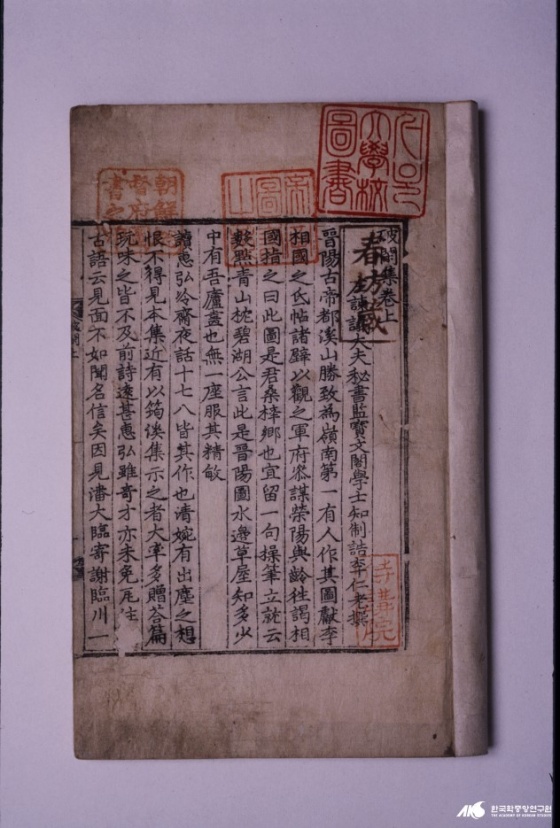 破閑集卷上
春坊藏
左諫議大夫秘書監寶文閣學士知制誥李仁老撰
晉陽古帝都溪山勝致為嶺南第一有人作其圖獻李
相國之氐帖諸辟以觀之軍府叅謀榮陽與齡徃謁相
國指之曰此圖是君桑梓鄉也宜留一句操筆立就云
數㸃青山枕碧湖公言此是晉陽圖水邊草屋知多少
中有吾廬畫也無一座服其精敏
讀惠弘冷齋夜話十七八皆其作也清婉有出塵之想
恨不得見本集近有以筠溪集示之者大率多贈荅篇
玩味之皆不及前詩遠甚惠弘雖奇才亦未免瓦注
古語云見面不如聞名信矣因見潘大臨寄謝臨川一
大學校圖書
侍講院
한국학중앙연구원
THE ACADEMY OF KOREAN STUDIES